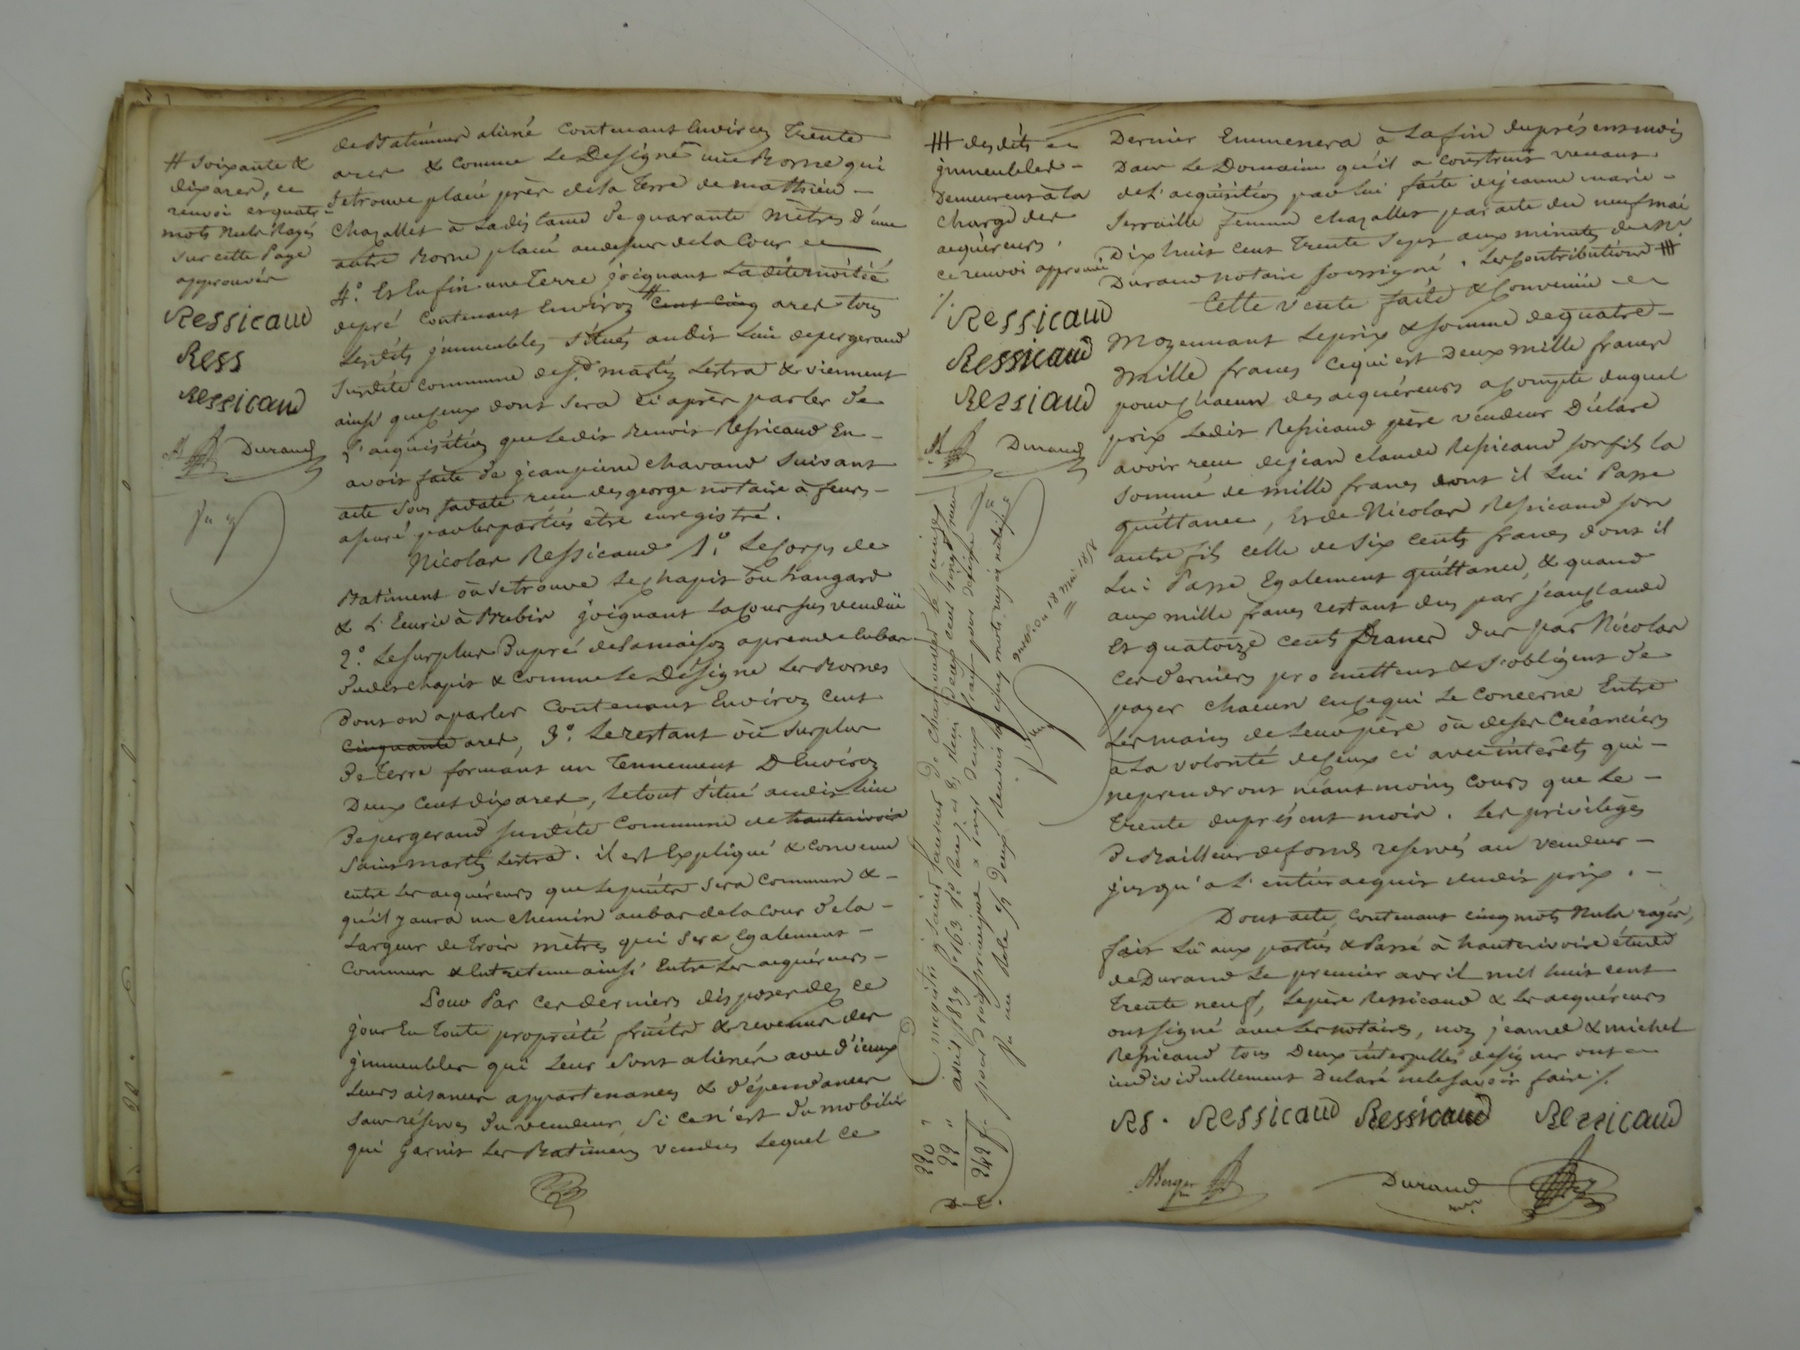 # Soixante &
dix ares, ce
renvoi et quatre
mots nuls rayés
sur cette Page
approuvés
Ressicaud
Ress
Ressicaud
Durand
de Batiment aliené Contenant Environ trente
ares & comme Le Designe une Borne qui
se trouve placée près de la terre de mathieu
Chazallet à La distance de quarante mètres d'une
autre Borne placée au dessus de la Cour et
4.° Et Enfin une terre joignant La de
de pré Contenant Environ # Cent Cinq ares tous
Lesdits jmmeubles situés audit Lieu de pergerand
Susdite commune de St martin Lestra & viennent
ainsi que ceux dont sera ci après parler de
L'acquisition que Ledit Benoit Ressicaud En
avoit faite de jean pierre chavand Suivant
acte Sous sa date reçu desgeorge notaire à feurs
assuré par les parties être enregistré.
Nicolas Ressicaud 1.° Le Corps de
Batiment où se trouve Le chapit ou hangard
& L'Ecurie à Brebis joignant La Cour sus vendüe
2.° Le Surplus Du pré de La maison a prendre au bas
dudit chapit & comme Le Désigne Les Bornes
dont on a parler Contenant Environ cent
Cinquante ares, 3.° Le restant ou Surplus
de terre formant un Tennement D'Environ
Deux Cent dix ares, Le tout situé audit Lieu
de pergerand susdite Commune de hauterivoire
Saint martin Lestra. il est Expliqué & Convenu
entre Les acquéreurs que Le puits sera Commun &
qu'il y aura un chemin au bas de la Cour de la
Largeur de trois mètres qui sera Egalement
Commun & Entretenu ainsi Entre Les acquéreurs
Pour Par Ces derniers disposer dez ce
jour En toute propriété fruits & revenus des
jmmeubles qui Leur sont alienés avec d'iceux
Leurs aisances appartenances & dépendances
Sans réserves du vendeur Si Ce n'est du mobilier
qui garnit Les Batiments vendus Lequel Ce
# desdits
jmmeubles
Demeurent à La
Charge des
acquéreurs.
ce renvoi approuvé
Ressicaud
Ressicaud
Ressicaud
Durand
Dernier Emmenera à La fin du présent mois
Dans Le Domaine qu'il a construit venant
de L'acquisition par Lui faite de jeanne marie
Serraille femme Chazallet par acte du neuf mai
Dix huit cent trente Sept aux minutes de Me
Durand notaire Soussigné. Les Contributions #
Cette vente faite & Convenüe
Moyennant Le prix & somme de quatre
Mille francs Ce qui est Deux mille francs
pour Chacun des acquéreurs a Compte duquel
prix Ledit Ressicaud père vendeur Déclare
avoir reçu de jean claude Ressicaud son fils la
Somme de mille francs dont il Lui Passe
quittance, Et de Nicolas Ressicaud son
autre fils celle de Six cents francs dont il
Lui Passe Egalement quittance, & quand
aux mille francs restant dus par jean Claude
Et quatorze cents francs dus par Nicolas
Ces derniers promettent & s'obligent de
payer chacun en ce qui Le concerne Entre
Les mains de Leur père ou de ses Créanciers
à La volonté de ceux ci avec intérêts qui
ne prendront néant moins Cours que Le
trente du présent mois. Les privilèges
de Bailleur de fonds reservés au vendeur
jusqu'a L'entier acquit dudit prix.
Dont acte, Contenant cinq mots Nuls rayés,
fait Lu aux parties & Passé à hauterivoire étude
de Durand Le premier avril mil huit cent
trente neuf, Le père Ressicaud & Les acquéreurs
ont Signé avec Les notaires, non jeanne & michel
Ressicaud tous Deux interpellés de signer ont
individuellement Déclaré ne Le savoir faire ./.
RS. Ressicaud Ressicaud Ressicaud
ABerger
Durand
Enregistré à Saint Laurent de Chamousset le quinze
avril 1839 f° 163
220 "
22 "
242 f.